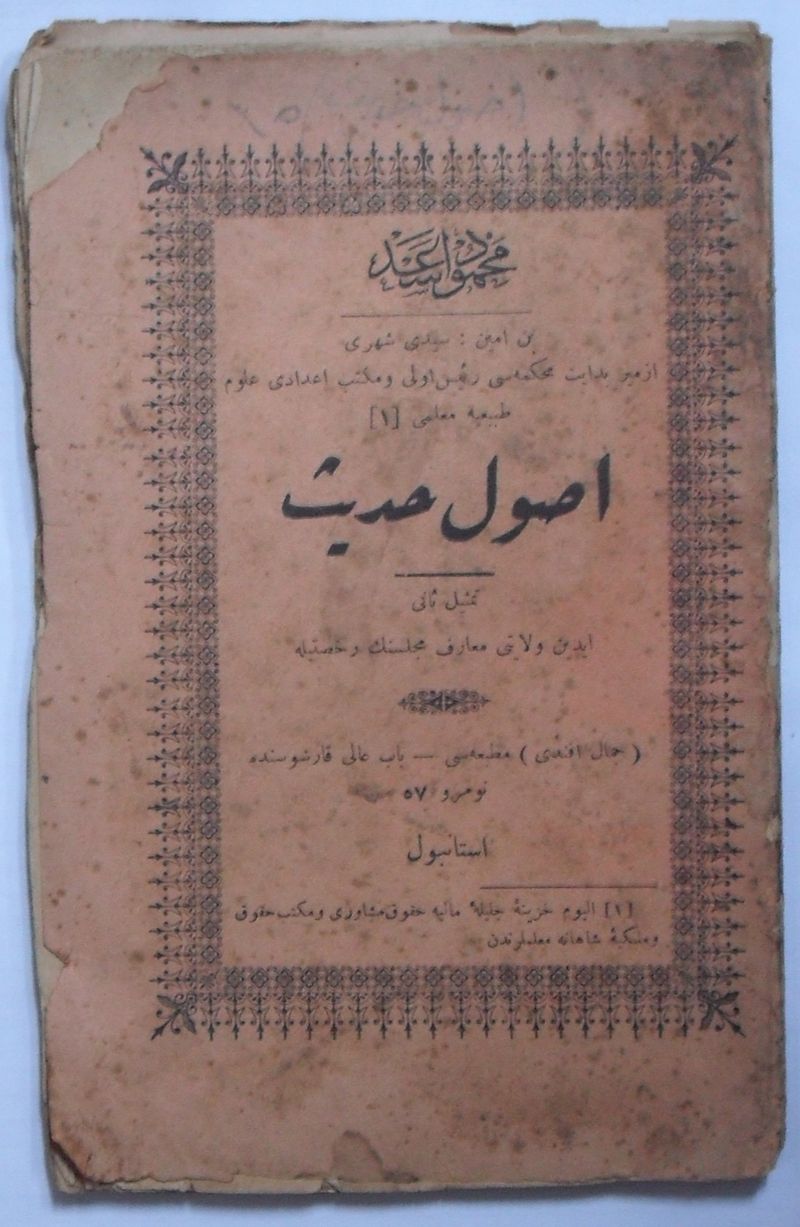 محمود اسعد
بن امين : سيدى شهرى
ازمير بدايت محكمه‌سى رئيس اولى ومكتب اعدادى علوم
طبيعيه معلمى [١]
اصول حديث
تمثيل ثانى
ايدين ولايتى معارف مجلسنك رخصتيله
( جمال افندى ) مطبعه‌سى — باب عالى قارشوسنده
نومرو ٥٧
استانبول
[١] اليوم خزينهٔ جليلهٔ ماليه حقوق مشاورى ومكتب حقوق
وملكيهٔ شاهانه معلملرندن